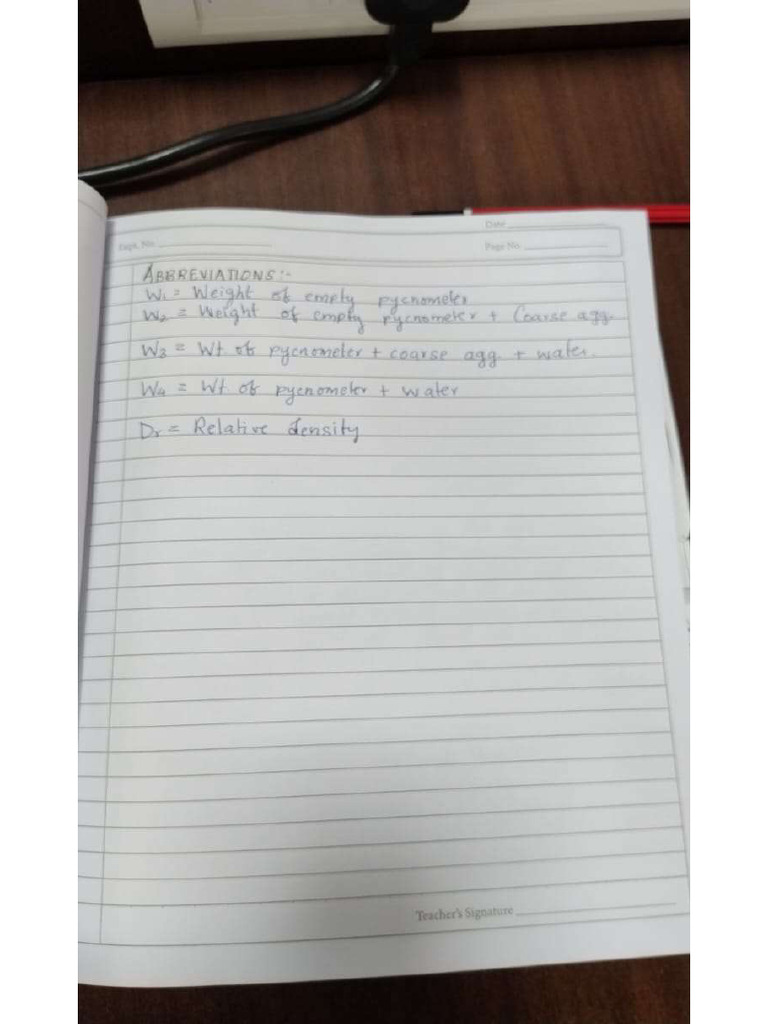 Date
Expt. No.
Page No.
ABBREVIATIONS:-
W1 = Weight of empty pycnometer
W2 = Weight of empty pycnometer + Coarse agg.
W3 = Wt of pycnometer + coarse agg. + water.
W4 = Wt of pycnometer + water
Dr = Relative density
Teacher's Signature